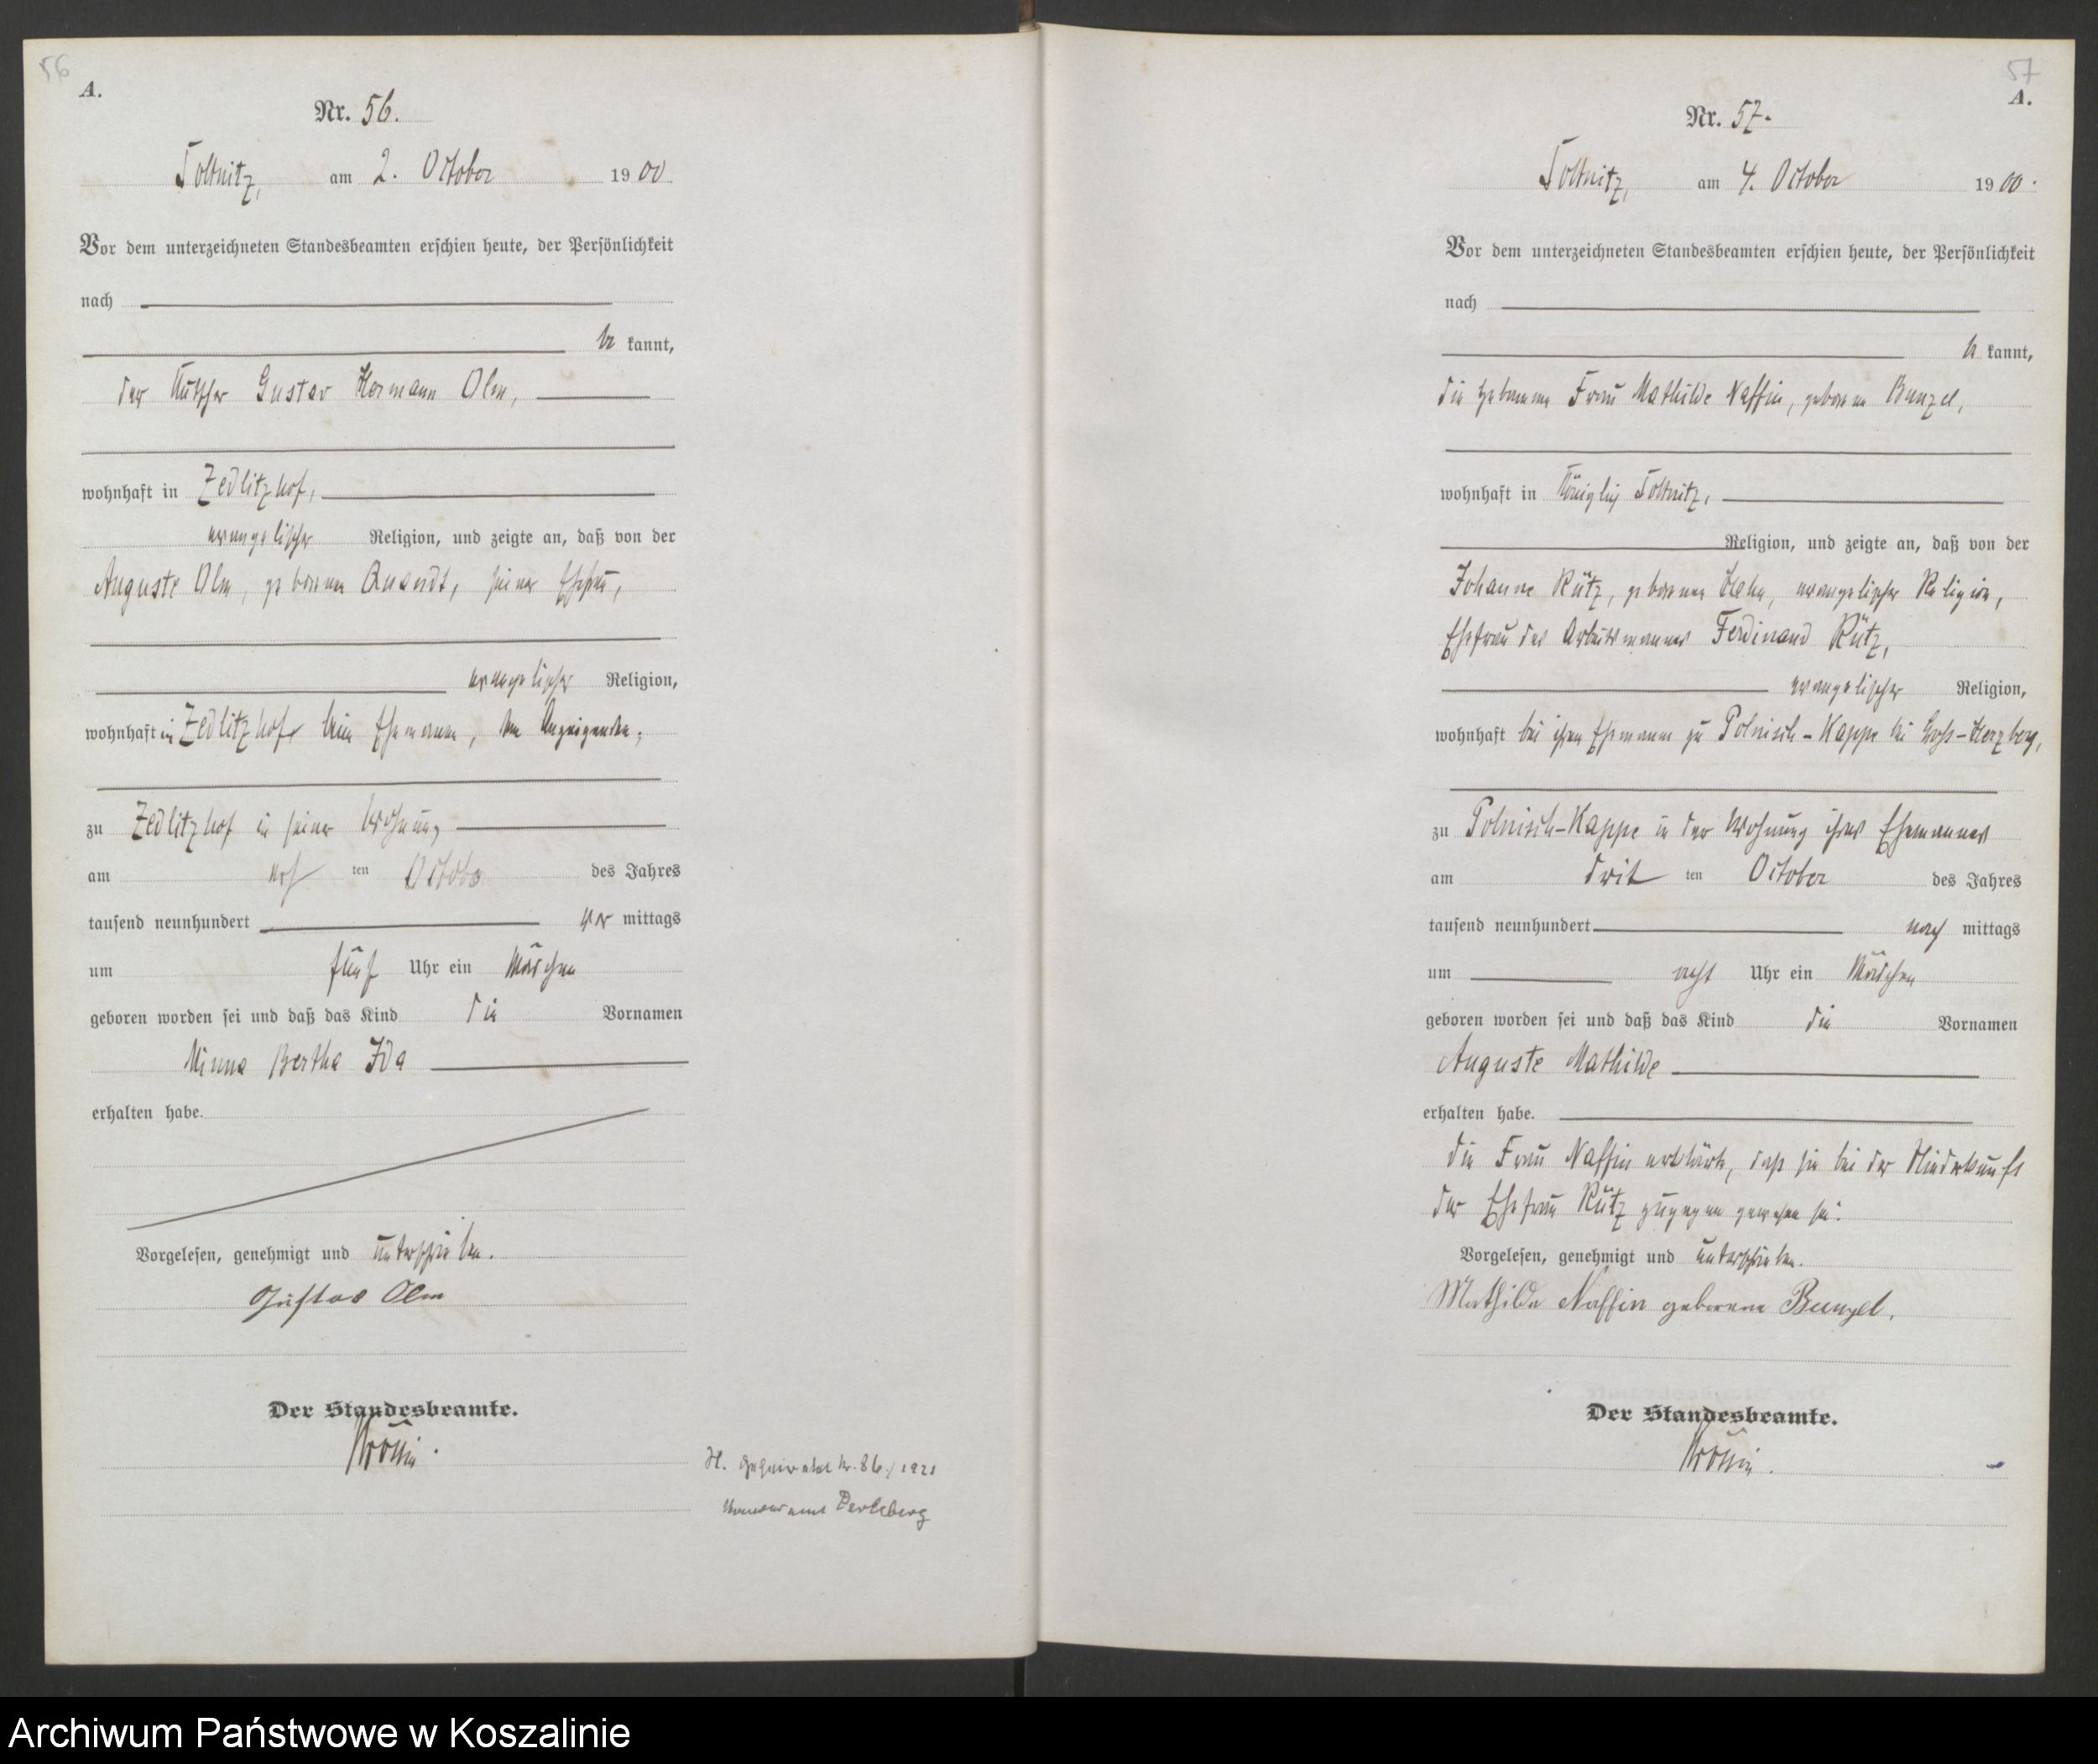 56
A.
Nr. 56.
Soltnitz, am 2. October 1900
Vor dem unterzeichneten Standesbeamten erschien heute, der Persönlichkeit
nach
be kannt,
der Kutscher Gustav Hermann Olm,
wohnhaft in Zedlitzhof,
evangelischer Religion, und zeigte an, daß von der
Auguste Olm, geborenen Quandt, seiner Ehefrau,
evangelischer Religion,
wohnhaft in Zedlitzhof beim Ehemann, dem Anzeigenden,
zu Zedlitzhof in seiner Wohnung
am ersten October des Jahres
tausend neunhundert vor mittags
um fünf Uhr ein Mädchen
geboren worden sei und daß das Kind die Vornamen
Minna Bertha Ida
erhalten habe.
Vorgelesen, genehmigt und unterschrieben.
Gustav Olm
Der Standesbeamte.
H. geheiratet Nr. 86/1921
Perleberg
57
A.
Nr. 57.
Soltnitz, am 4. October 1900.
Vor dem unterzeichneten Standesbeamten erschien heute, der Persönlichkeit
nach
be kannt,
die Hebamme Frau Mathilde Naffin, geborene Bunzel,
wohnhaft in Königlich Soltnitz,
Religion, und zeigte an, daß von der
Johanne Rütz, geborenen Hehn, evangelischer Religion,
Ehefrau des Arbeitsmannes Ferdinand Rütz,
evangelischer Religion,
wohnhaft bei ihrem Ehemann zu Polnisch-Kappe bei Groß-Herzberg,
zu Polnisch-Kappe in der Wohnung ihres Ehemannes
am dritten October des Jahres
tausend neunhundert nach mittags
um acht Uhr ein Mädchen
geboren worden sei und daß das Kind die Vornamen
Auguste Mathilde
erhalten habe.
Die Frau Naffin erklärte, daß sie bei der Niederkunft
der Ehefrau Rütz zugegen gewesen sei.
Vorgelesen, genehmigt und unterschrieben.
Mathilde Naffin geborene Bunzel.
Der Standesbeamte.
Archiwum Państwowe w Koszalinie